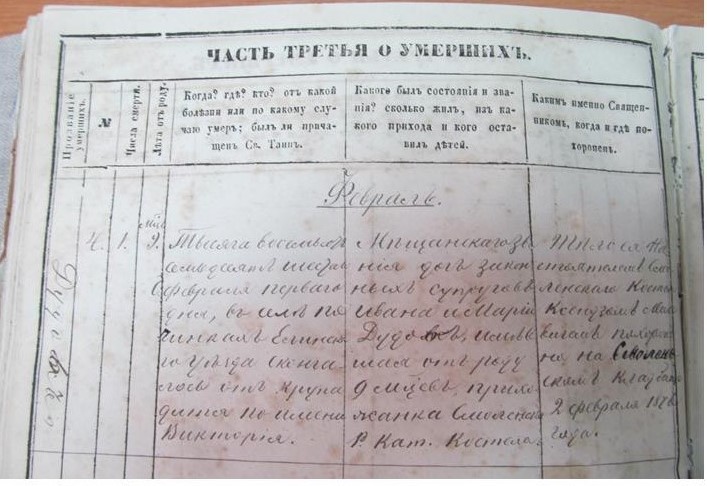 ЧАСТЬ ТРЕТЬЯ О УМЕРШИХЪ.
Прозваніе умершихъ.
№
Числа смерти.
Лѣта отъ роду.
Когда? гдѣ? кто? отъ какой
болѣзни или по какому слу-
чаю умеръ; былъ ли прича-
щенъ Св. Таинъ.
Какого былъ состоянія и зва-
нія? сколько жилъ, изъ ка-
кого прихода и кого оста-
вилъ дѣтей.
Какимъ именно Священ-
никомъ, когда и гдѣ по-
хороненъ.
Февраль.
4.
1.
9.
Тысяча восемьсотъ
семьдесятъ шестаго
февраля перваго
дня, въ
Ельнинска-
го уѣзда сконча-
лось отъ крупа
дитя по имени
Викторія.
Мѣщанскаго зва-
нія дочь закон-
ныхъ супруговъ
Ивана и Маріи
имѣв-
шая отъ роду
9 м-цевъ, прихо-
жанка Смоленска
Р. Кат. Костела.
Тѣло ея На-
стоятелемъ Смо-
ленскаго Косте
Ксендзомъ
похоро-
на на Смолен-
скомъ Кладбищѣ
2 февраля 1876
года.